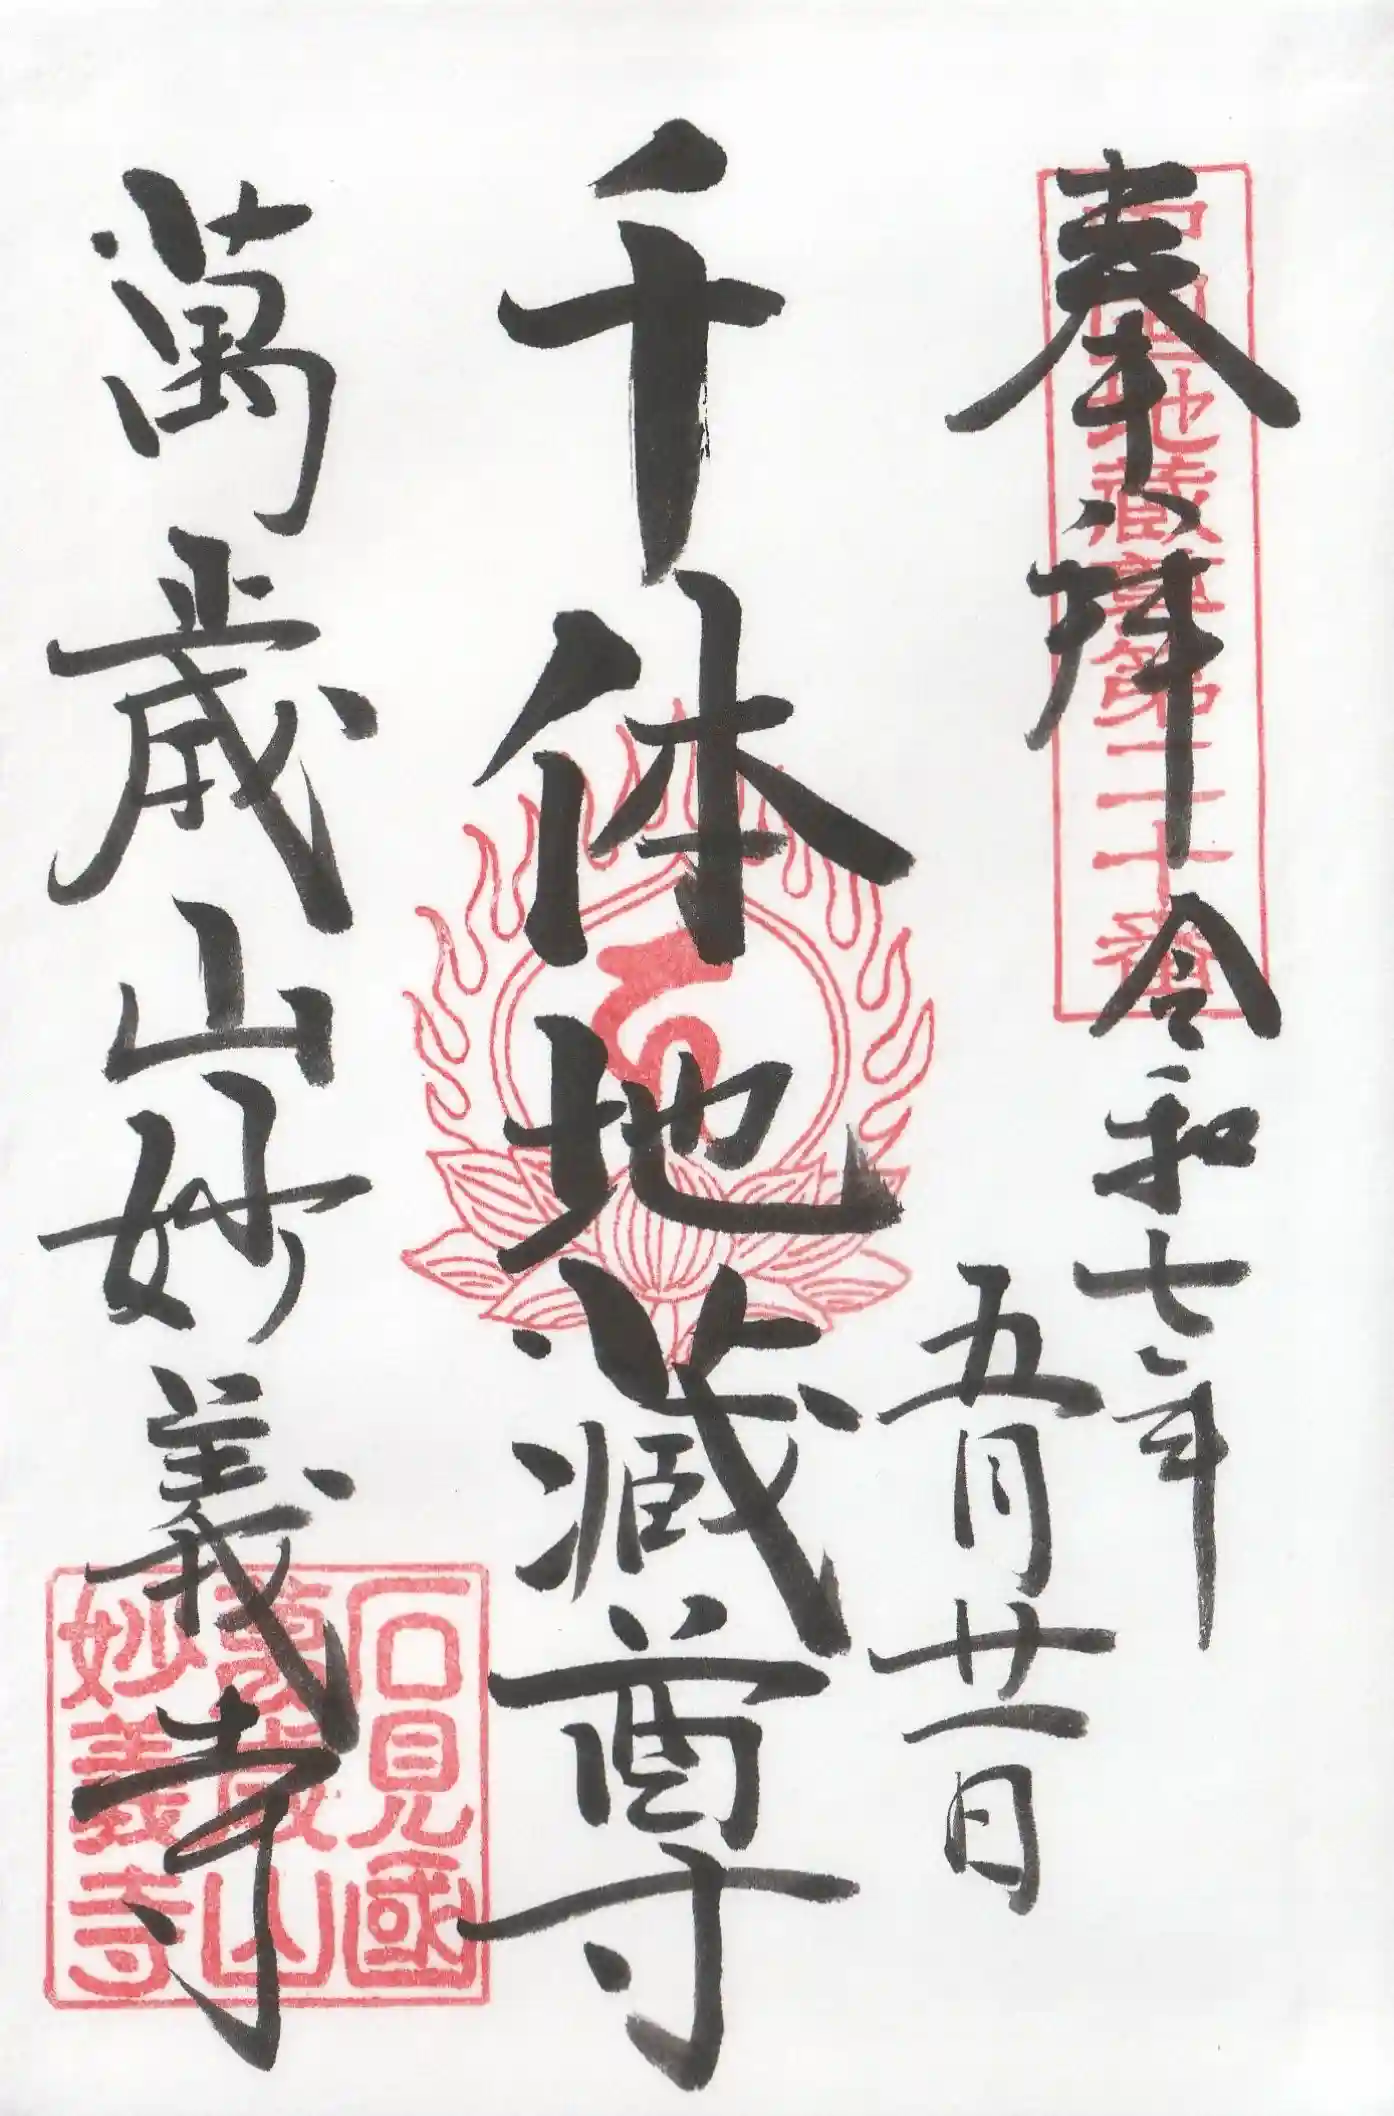 奉拝
令和七年
五月廿一日
千体地蔵尊
萬歳山妙義寺
中国地蔵尊第二十番
石見國
萬歳山
妙義寺